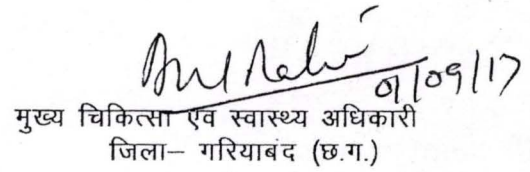 01/09/17
मुख्य चिकित्सा एवं स्वास्थ्य अधिकारी
जिला– गरियाबंद (छ.ग.)